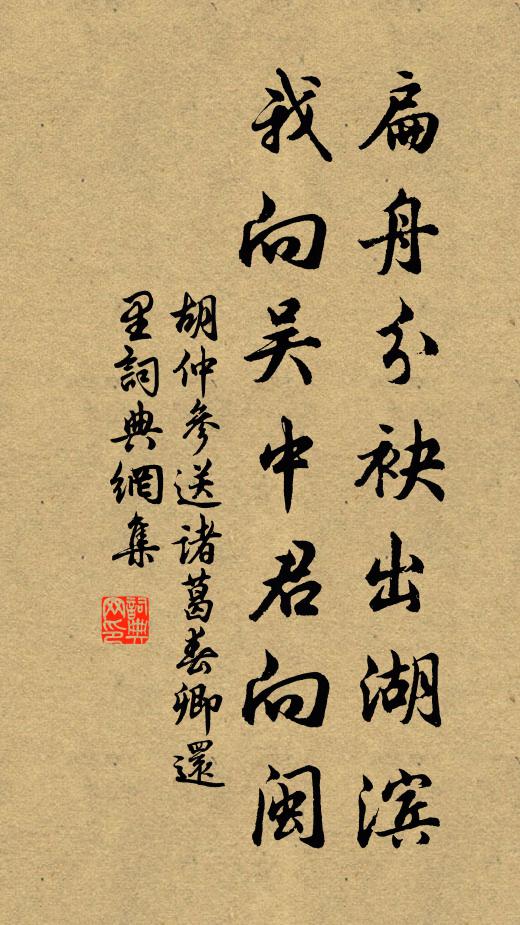 扁舟分袂出湖滨
我向吴中君向闽
胡仲參送诸葛春卿還
里詞典網集
詞典
网印